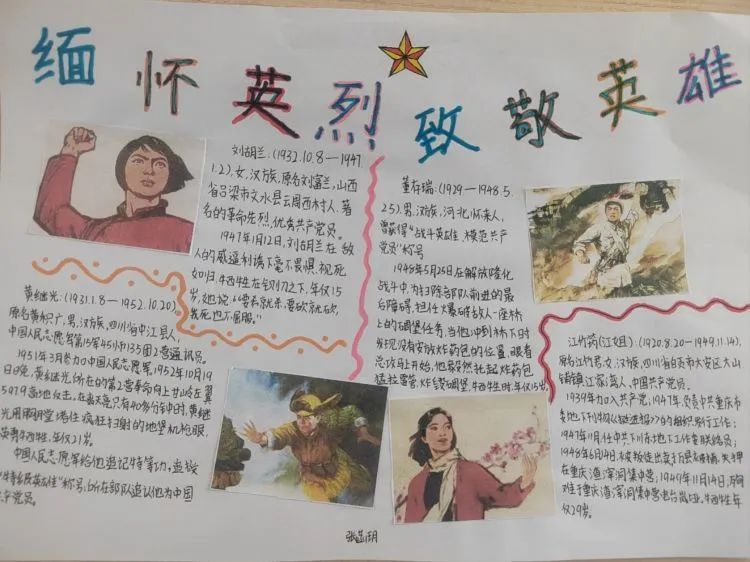 缅怀英烈致敬英雄
刘胡兰:(1932.10.8—1947.
1.2),女,汉族,原名刘富兰,山西
省吕梁市文水县云周西村人,著
名的革命先烈,优秀共产党员。
1947年1月12日,刘胡兰在敌
人的威逼利诱下毫不畏惧,视死
如归,牺牲在铡刀之下,年仅15
岁,她说:"要杀就杀,要砍就砍,
我死也不屈服。"
黄继光:(1931.1.8—1952.10.20),
男,汉族,四川省中江县人,
中国人民志愿军第15军45师135团2营通讯员。
1951年3月参加中国人民志愿军,1952年10月19
日晚,黄继光所在的第2营奉命向上甘岭右翼
5979高地反击,在离天亮只有40多分钟时,黄继
光用胸膛堵住疯狂扫射的地堡机枪眼,
英勇牺牲,年仅21岁。
中国人民志愿军给他追记特等功,追授
"特级英雄"称号;所在部队追认他为中国
共产党员。
董存瑞:(1929—1948.5.
25),男,汉族,河北怀来人,
曾获得"战斗英雄、模范共产
党员"称号
1948年5月25日在解放隆化
战斗中,为扫除部队前进的最
后障碍,担任爆破敌人一座桥
上的碉堡任务,当他冲到桥下时
发现没有安放炸药包的位置,眼看
总攻马上开始,他毅然托起炸药包
猛拉雷管,炸毁碉堡,牺牲时,年仅19岁
江竹筠(江姐):(1920.8.20—1949.11.14),
原名江竹君,女,汉族,四川省自贡市大安区大山
铺镇江家湾人,中国共产党员。
1939年加入共产党,1947年,负责中共重庆市
委地下刊物《挺进报》的组织发行工作;
1947年11月任中共下川东地下工作委联络员;
1948年6月14日,被叛徒出卖于万县被捕,关押
在重庆渣滓洞集中营;1949年11月14日,
于重庆渣滓洞集中营电台岚垭,牺牲时年
仅29岁。
张 玥